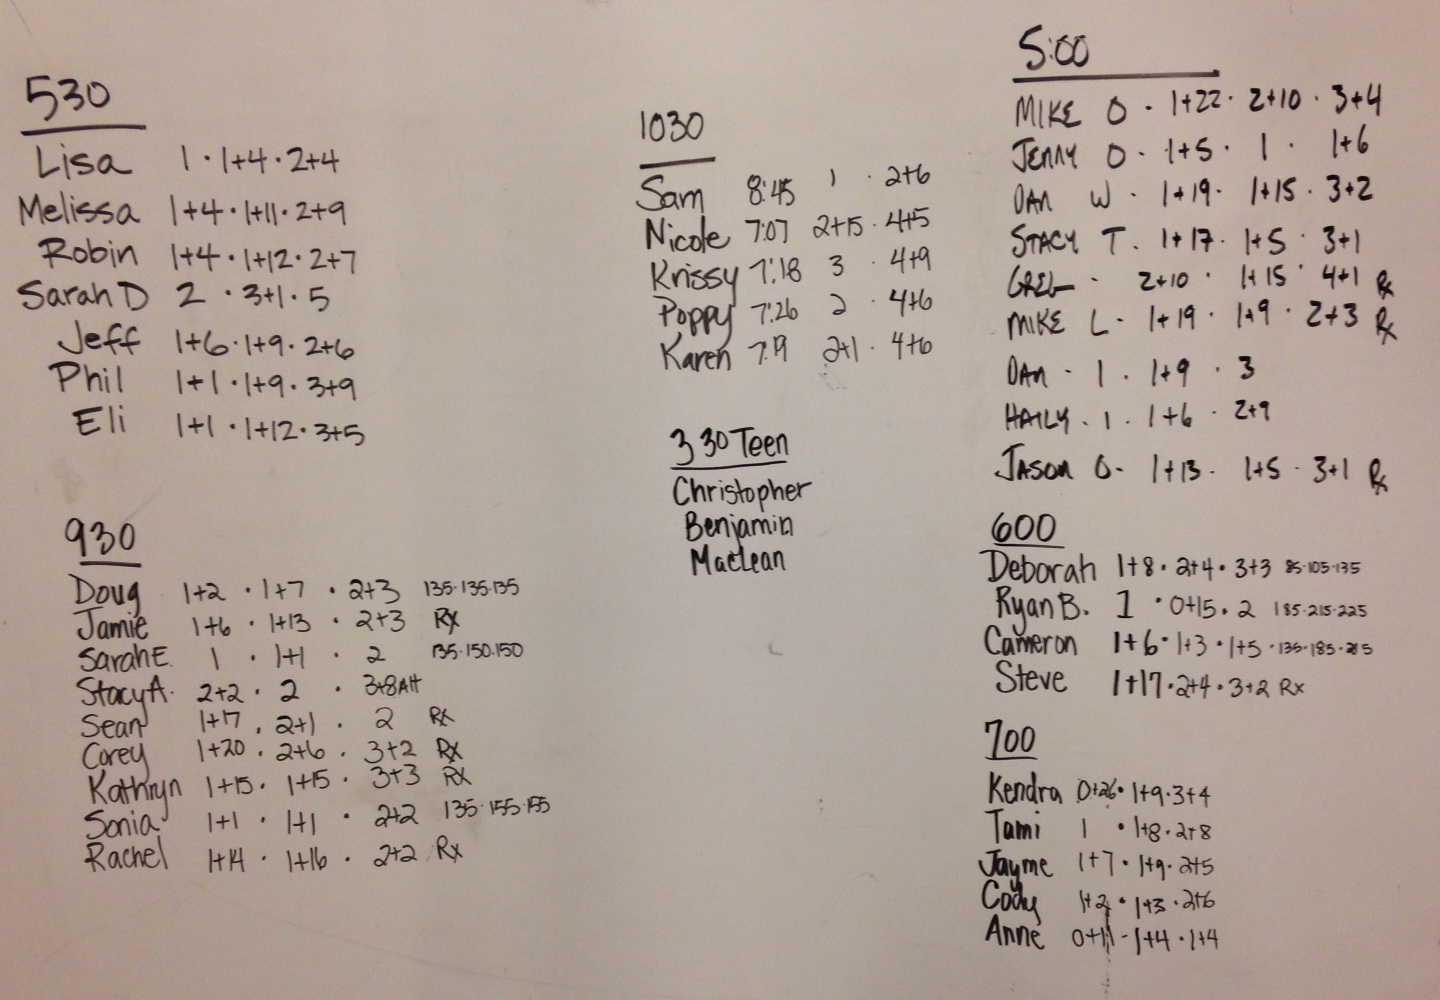 530
Lisa 1 · 1+4 · 2+4
Melissa 1+4 · 1+11 · 2+9
Robin 1+4 · 1+12 · 2+7
Sarah D 2 · 3+1 · 5
Jeff 1+6 · 1+9 · 2+6
Phil 1+1 · 1+9 · 3+9
Eli 1+1 · 1+12 · 3+5
930
Doug 1+2 · 1+7 · 2+3 135·135·135
Jamie 1+6 · 1+13 · 2+3 Rx
Sarah E. 1 · 1+1 · 2 135·150·150
Stacy A. 2+2 · 2 · 3+8 Alt
Sean 1+17 · 2+1 · 2 Rx
Corey 1+20 · 2+6 · 3+2 Rx
Kathryn 1+15 · 1+15 · 3+3 Rx
Sonia 1+1 · 1+1 · 2+2 135·155·155
Rachel 1+14 · 1+16 · 2+2 Rx
1030
Sam 8:45 1 · 2+6
Nicole 7:07 2+15 · 4+5
Krissy 7:18 3 · 4+9
Poppy 7:26 2 · 4+6
Karen 7:19 2+1 · 4+6
330 Teen
Christopher
Benjamin
MacLean
5:00
MIKE O · 1+22 · 2+10 · 3+4
JENNY O · 1+5 · 1 · 1+6
DAN W · 1+19 · 1+15 · 3+2
STACY T. 1+17 · 1+5 · 3+1
GREG - 2+10 · 1+15 · 4+1 Rx
MIKE L - 1+19 · 1+9 · 2+3 Rx
DAN - 1 · 1+9 · 3
HAILY · 1 · 1+6 · 2+9
JASON O - 1+13 · 1+5 · 3+1 Rx
600
Deborah 1+8 · 2+4 · 3+3 85·105·135
Ryan B. 1 · 0+15 · 2 185·215·225
Cameron 1+6 · 1+3 · 1+5 · 135·185·215
Steve 1+17 · 2+4 · 3+2 Rx
700
Kendra 0+26 · 1+9 · 3+4
Tami 1 · 1+8 · 2+8
Jayme 1+7 · 1+9 · 2+5
Cody 1+2 · 1+3 · 2+6
Anne 0+11 - 1+4 · 1+4